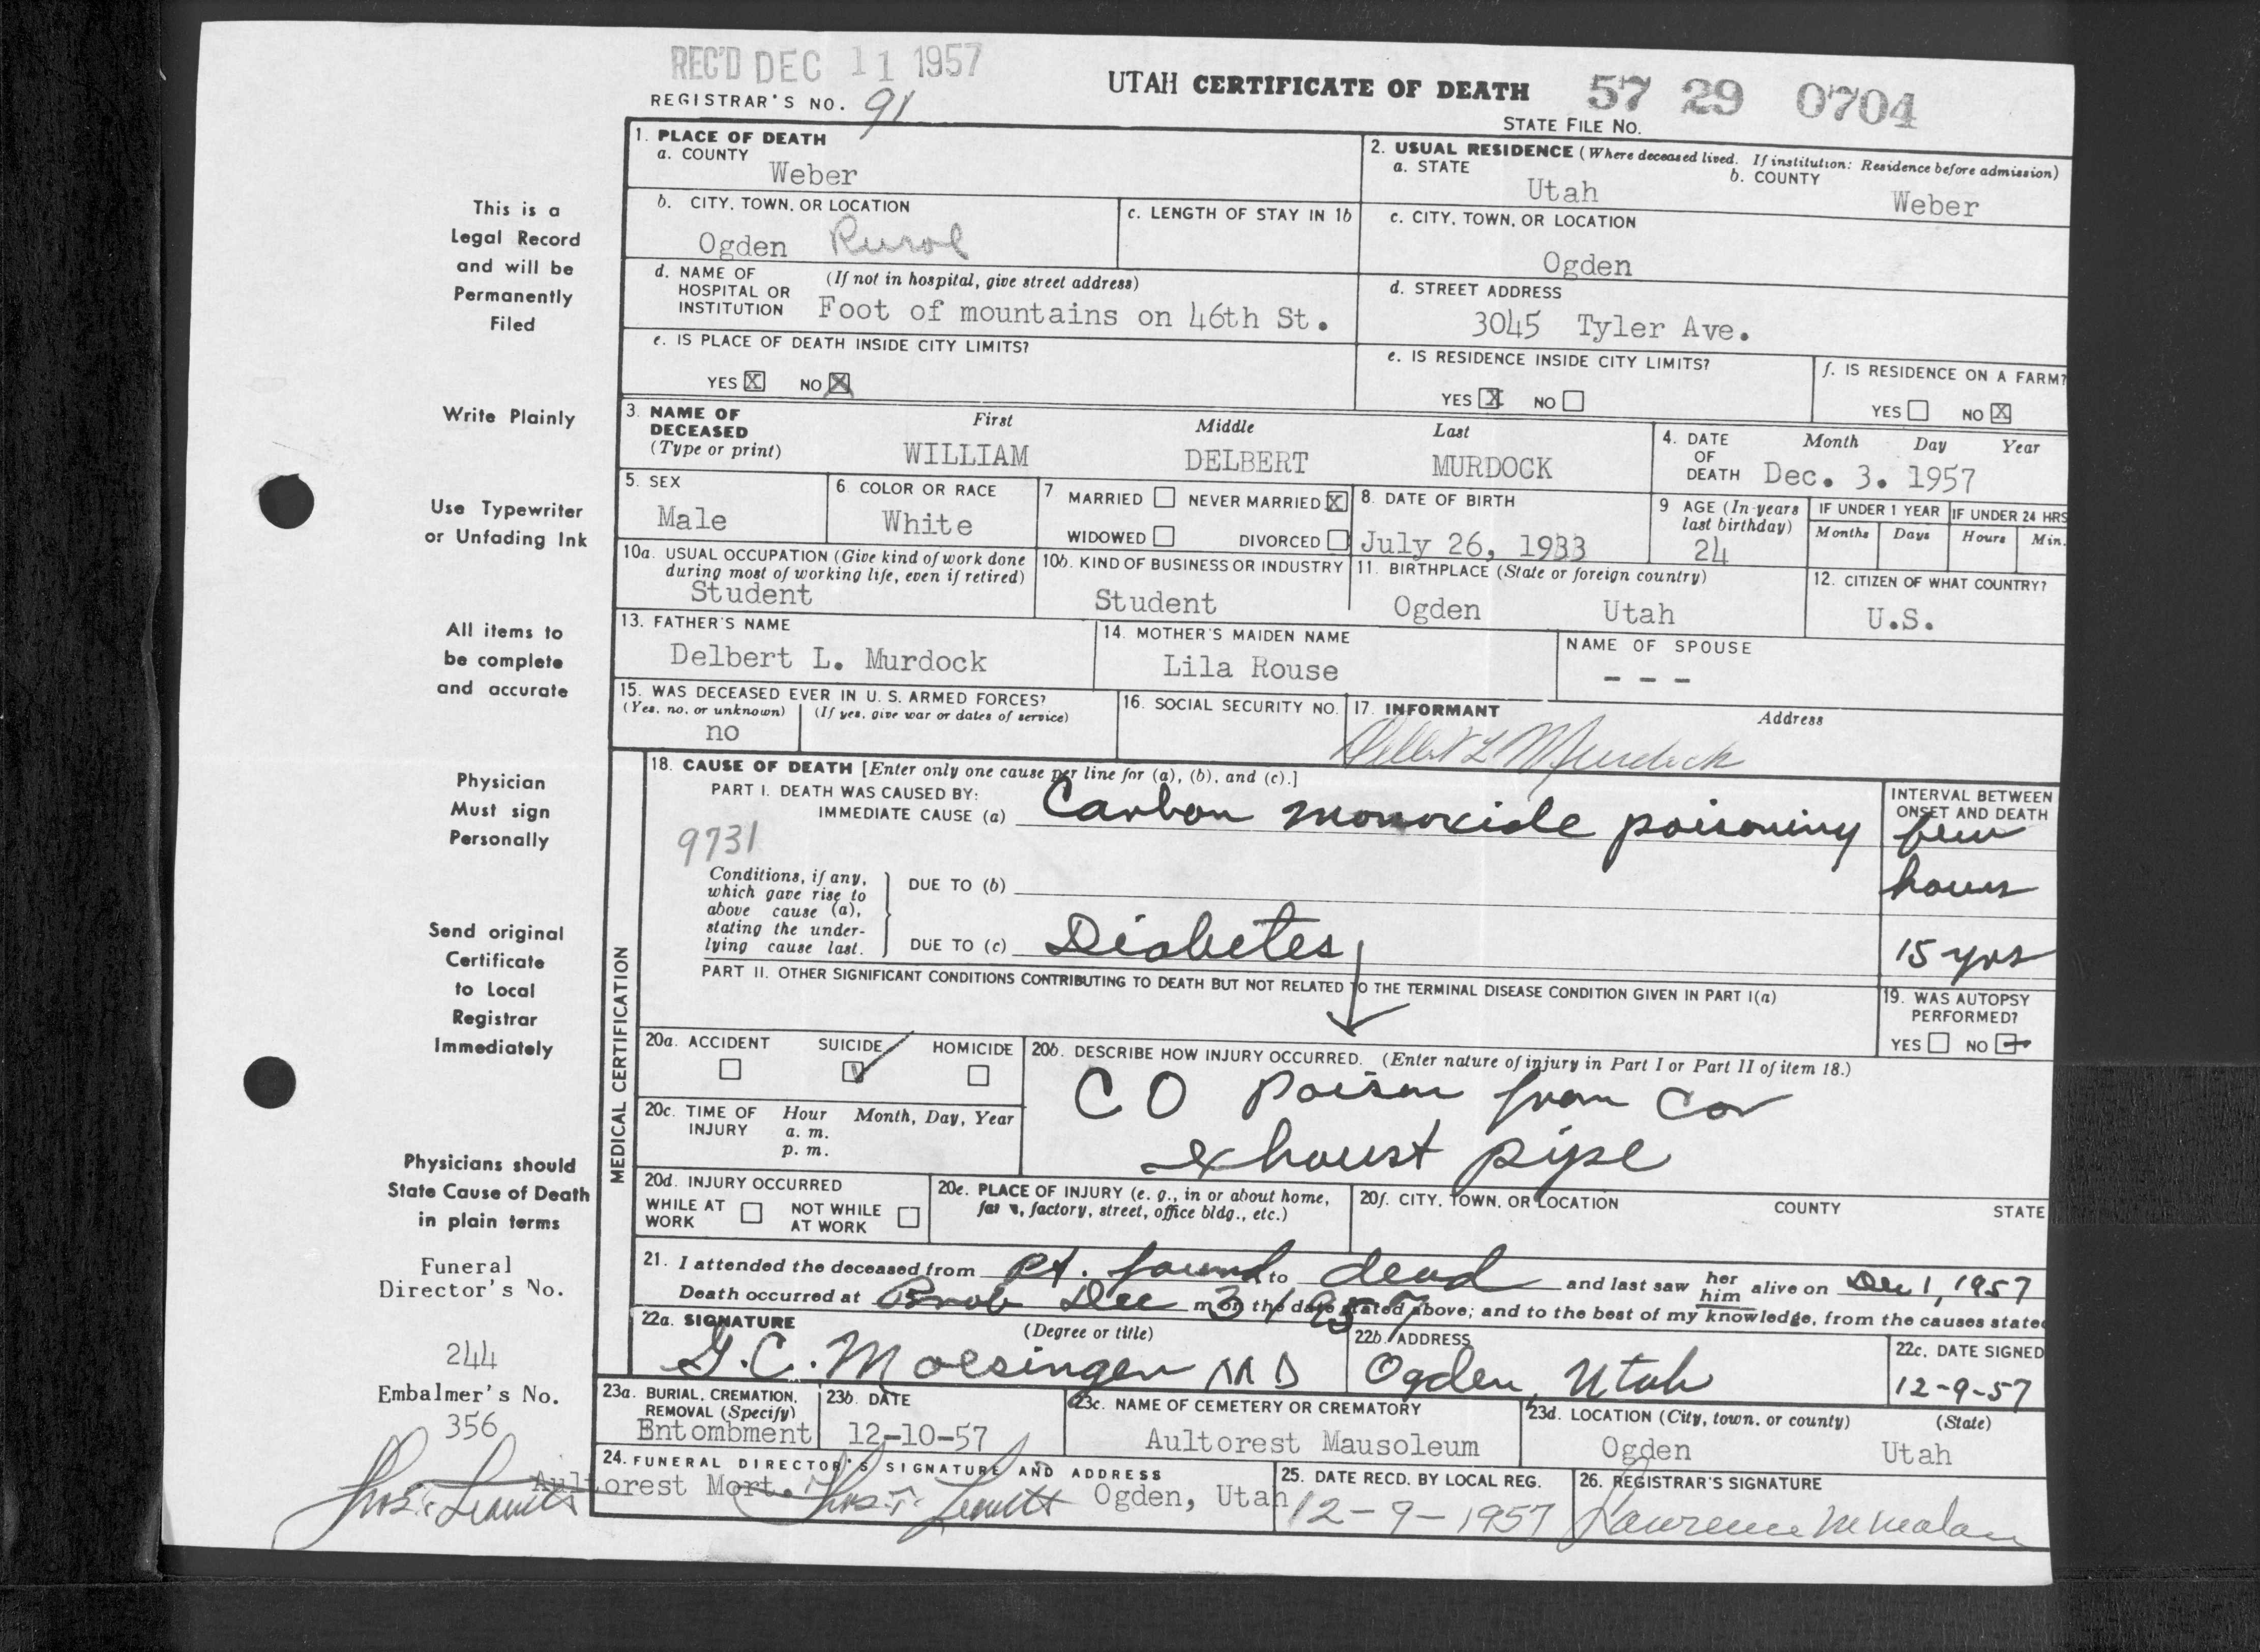 REC'D DEC 11 1957
REGISTRAR'S NO. 91
UTAH CERTIFICATE OF DEATH
57 29 0704
STATE FILE NO.
This is a
Legal Record
and will be
Permanently
Filed
Write Plainly
Use Typewriter
or Unfading Ink
All items to
be complete
and accurate
Physician
Must sign
Personally
Send original
Certificate
to Local
Registrar
Immediately
Physicians should
State Cause of Death
in plain terms
Funeral
Director's No.
244
Embalmer's No.
356
1. PLACE OF DEATH
a. COUNTY
Weber
b. CITY, TOWN, OR LOCATION
Ogden Rural
c. LENGTH OF STAY IN 1b
d. NAME OF HOSPITAL OR INSTITUTION (If not in hospital, give street address)
Foot of mountains on 46th St.
e. IS PLACE OF DEATH INSIDE CITY LIMITS?
YES X NO X
2. USUAL RESIDENCE (Where deceased lived. If institution: Residence before admission)
a. STATE
Utah
b. COUNTY
Weber
c. CITY, TOWN, OR LOCATION
Ogden
d. STREET ADDRESS
3045 Tyler Ave.
e. IS RESIDENCE INSIDE CITY LIMITS?
YES X NO
f. IS RESIDENCE ON A FARM?
YES NO X
3. NAME OF DECEASED (Type or print)
First Middle Last
WILLIAM DELBERT MURDOCK
4. DATE OF DEATH Month Day Year
Dec. 3. 1957
5. SEX
Male
6. COLOR OR RACE
White
7 MARRIED NEVER MARRIED X
WIDOWED DIVORCED
8. DATE OF BIRTH
July 26, 1933
9 AGE (In years last birthday)
24
IF UNDER 1 YEAR IF UNDER 24 HRS
Months Days Hours Min.
10a. USUAL OCCUPATION (Give kind of work done during most of working life, even if retired)
Student
10b. KIND OF BUSINESS OR INDUSTRY
Student
11. BIRTHPLACE (State or foreign country)
Ogden Utah
12. CITIZEN OF WHAT COUNTRY?
U.S.
13. FATHER'S NAME
Delbert L. Murdock
14. MOTHER'S MAIDEN NAME
Lila Rouse
NAME OF SPOUSE
- - -
15. WAS DECEASED EVER IN U. S. ARMED FORCES?
(Yes, no, or unknown) (If yes, give war or dates of service)
no
16. SOCIAL SECURITY NO.
17. INFORMANT Address
Delbert L Murdock
MEDICAL CERTIFICATION
18. CAUSE OF DEATH [Enter only one cause per line for (a), (b), and (c).]
PART I. DEATH WAS CAUSED BY:
IMMEDIATE CAUSE (a) Carbon monoxide poisoning
9731
Conditions, if any, which gave rise to above cause (a), stating the underlying cause last.
DUE TO (b)
DUE TO (c) Diabetes
INTERVAL BETWEEN ONSET AND DEATH
few
hours
15 yrs
PART II. OTHER SIGNIFICANT CONDITIONS CONTRIBUTING TO DEATH BUT NOT RELATED TO THE TERMINAL DISEASE CONDITION GIVEN IN PART I(a)
19. WAS AUTOPSY PERFORMED?
YES NO
20a. ACCIDENT SUICIDE HOMICIDE
20b. DESCRIBE HOW INJURY OCCURRED. (Enter nature of injury in Part I or Part II of item 18.)
CO Poison from car
exhoust pipe
20c. TIME OF INJURY Hour Month, Day, Year
a. m.
p. m.
20d. INJURY OCCURRED
WHILE AT WORK NOT WHILE AT WORK
20e. PLACE OF INJURY (e. g., in or about home, factory, street, office bldg., etc.)
20f. CITY, TOWN, OR LOCATION COUNTY STATE
21. I attended the deceased from Pt. found to dead and last saw her him alive on Dec 1, 1957
Death occurred at Prob Dec 3 1957 m on the date stated above; and to the best of my knowledge, from the causes stated
22a. SIGNATURE (Degree or title)
G.C. Moesinger MD
22b. ADDRESS
Ogden, Utah
22c. DATE SIGNED
12-9-57
23a. BURIAL, CREMATION, REMOVAL (Specify)
Entombment
23b. DATE
12-10-57
23c. NAME OF CEMETERY OR CREMATORY
Aultorest Mausoleum
23d. LOCATION (City, town, or county) (State)
Ogden Utah
24. FUNERAL DIRECTOR'S SIGNATURE AND ADDRESS
Aultorest Mort. Ogden, Utah
25. DATE RECD. BY LOCAL REG.
12-9-1957
26. REGISTRAR'S SIGNATURE